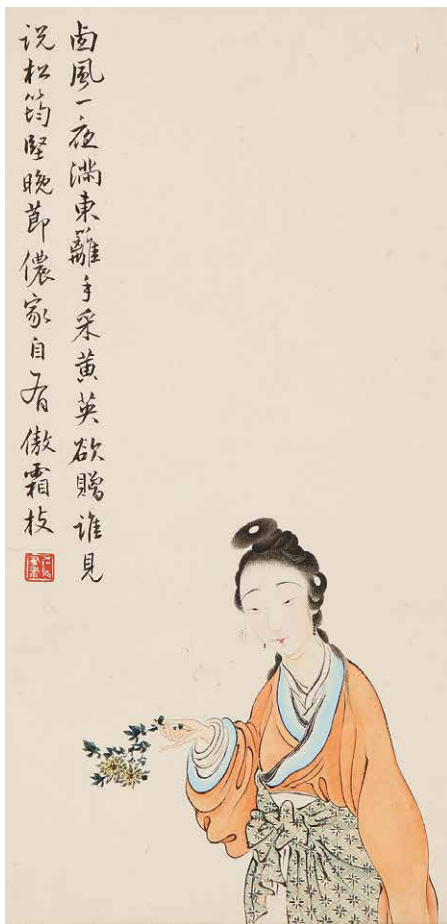 卥風一夜滿東籬手采黄英欲贈誰見
說松筠堅晚節儂家自有傲霜枝